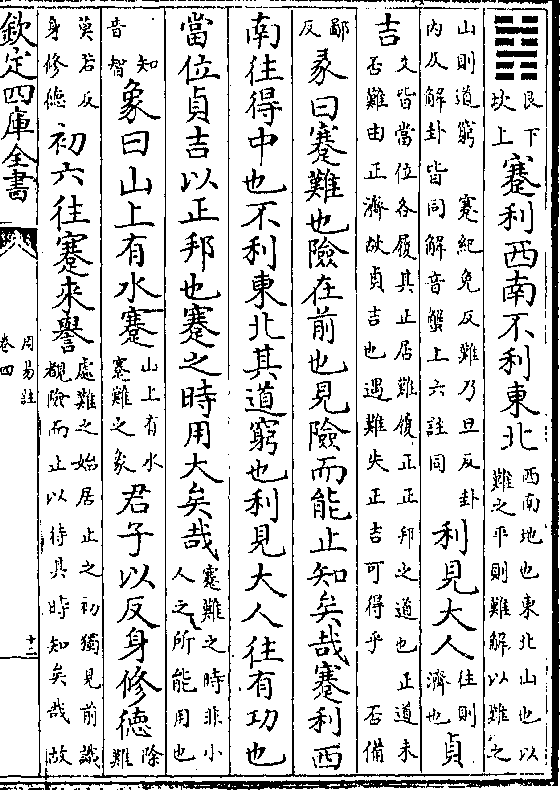 ䷦艮下坎上蹇利西南不利東北西南地也東北山也以難之平則難解以難之
山則道窮 蹇紀免反難乃旦反卦內及解卦皆同解音蟹上六註同利見大人往則濟也貞
吉爻皆當位各履其正居難履正正邦之道也正道未否難由正濟故貞吉也遇難失正吉可得乎 否備
鄙反彖曰蹇難也險在前也見險而能止知矣哉蹇利西
南往得中也不利東北其道窮也利見大人往有功也
當位貞吉以正邦也蹇之時用大矣哉蹇難之時非小人之所能用也
知音智象曰山上有水蹇山上有水蹇難之象君子以反身修德除難
莫若反身修德初六往蹇來譽處難之始居止之初獨見前識覩險而止以待其時知矣哉故
欽定四庫全書
周易註
卷四
十二